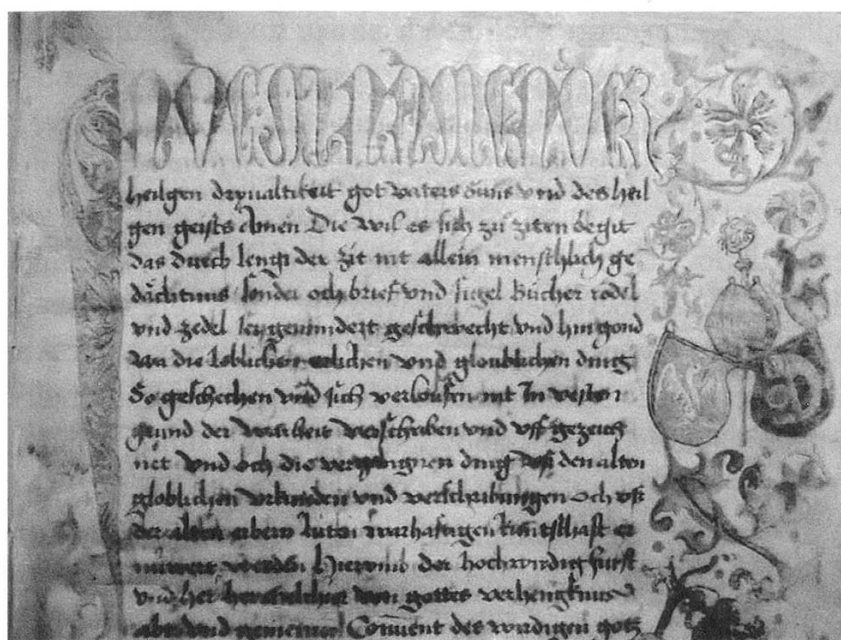 IN DEM NAMEN DER
heilgen dryualtikeit got vaters suns vnd des heil
gen geists Amen Die wil es sich zů ziten begit
das durch lengi der zit nit allein menschlich ge
dächtnus sonder och brief vnd sigel Bücher rödel
vnd zedel gemindert geschwecht vnd hingond
wa die loblichen erlichen vnd gloublichen ding
So geschechen vnd sich verloufen nit In vesten
grund der warheit verschriben vnd vff gezeich
net vnd och die vergangnen ding vss den alten
globlichen vrkunden vnd verschribungen och vss
der alten erbern lüten warhaftigen kuntschaft er
nüwert werden Hierumb der hochwirdig fürst
vnd her her von gottes verhengknus
abt vnd gemeiner Conuent des wirdigen gotz